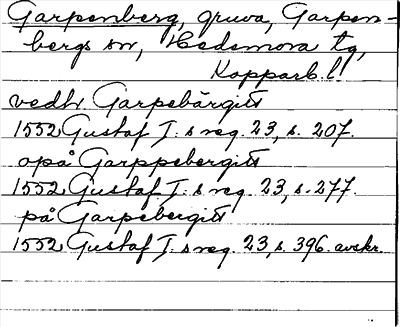 Garpenberg, gruva, Garpen-
bergs sn, Hedemora tg,
Kopparb. l.
vedh. Garpebärgitt
1552 Gustaf I: s reg. 23, s. 207.
opå Garppebergitt
1552 Gustaf I: s reg. 23, s. 277.
på Garpebergitt
1552 Gustaf I: s reg. 23, s. 396. avskr.